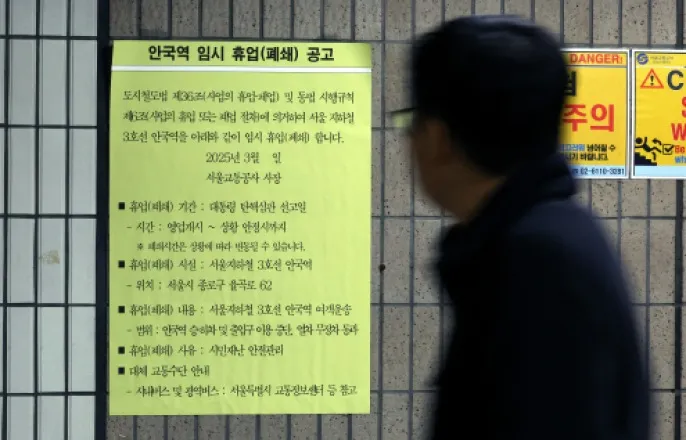 안국역 임시 휴업(폐쇄) 공고
도시철도법 제36조(사업의 휴업·폐업) 및 동법 시행규칙
제6조(사업의 휴업 또는 폐업 절차)에 의거하여 서울 지하철
3호선 안국역을 아래와 같이 임시 휴업(폐쇄) 합니다.
2025년 3월 일
서울교통공사 사장
■ 휴업(폐쇄) 기간 : 대통령 탄핵심판 선고일
- 시간 : 영업개시 ~ 상황 안정시까지
※ 폐쇄시간은 상황에 따라 변동될 수 있습니다.
■ 휴업(폐쇄) 시설 : 서울지하철 3호선 안국역
- 위치 : 서울시 종로구 율곡로 62
■ 휴업(폐쇄) 내용 : 서울지하철 3호선 안국역 여객운송
- 범위 : 안국역 승·하차 및 출입구 이용 중단, 열차 무정차 통과
■ 휴업(폐쇄) 사유 : 시민재난 안전관리
■ 대체 교통수단 안내
- 시내버스 및 광역버스 : 서울특별시 교통정보센터 등 참고
DANGER!
주의
02-6110-3291
서울교통공사